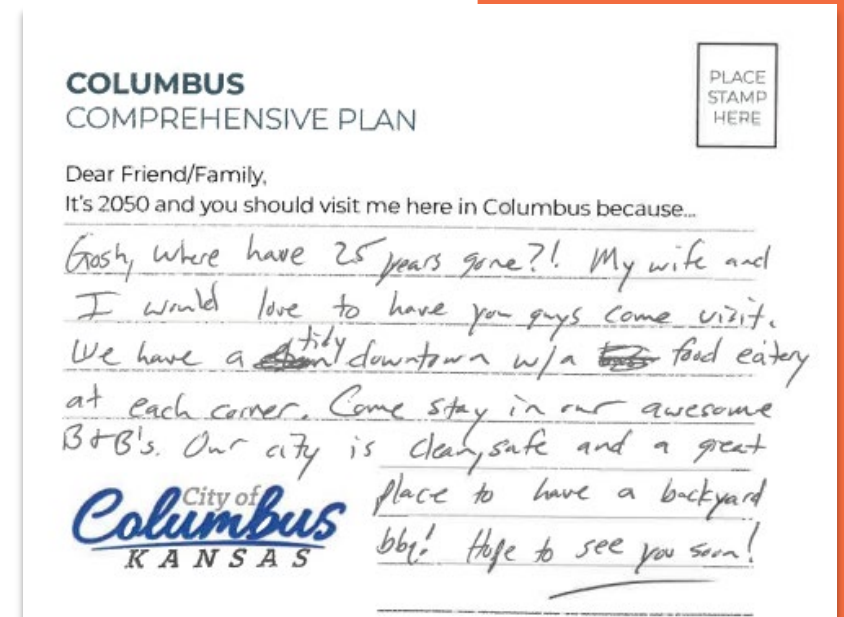 COLUMBUS
COMPREHENSIVE PLAN
PLACE
STAMP
HERE
Dear Friend/Family,
It's 2050 and you should visit me here in Columbus because...
Gosh, where have 25 years gone?! My wife and
I would love to have you guys come visit.
We have a tidy downtown w/a food eatery
at each corner. Come stay in our awesome
B+B's. Our city is clean, safe and a great
place to have a backyard
bbq! Hope to see you soon!
City of
Columbus
KANSAS